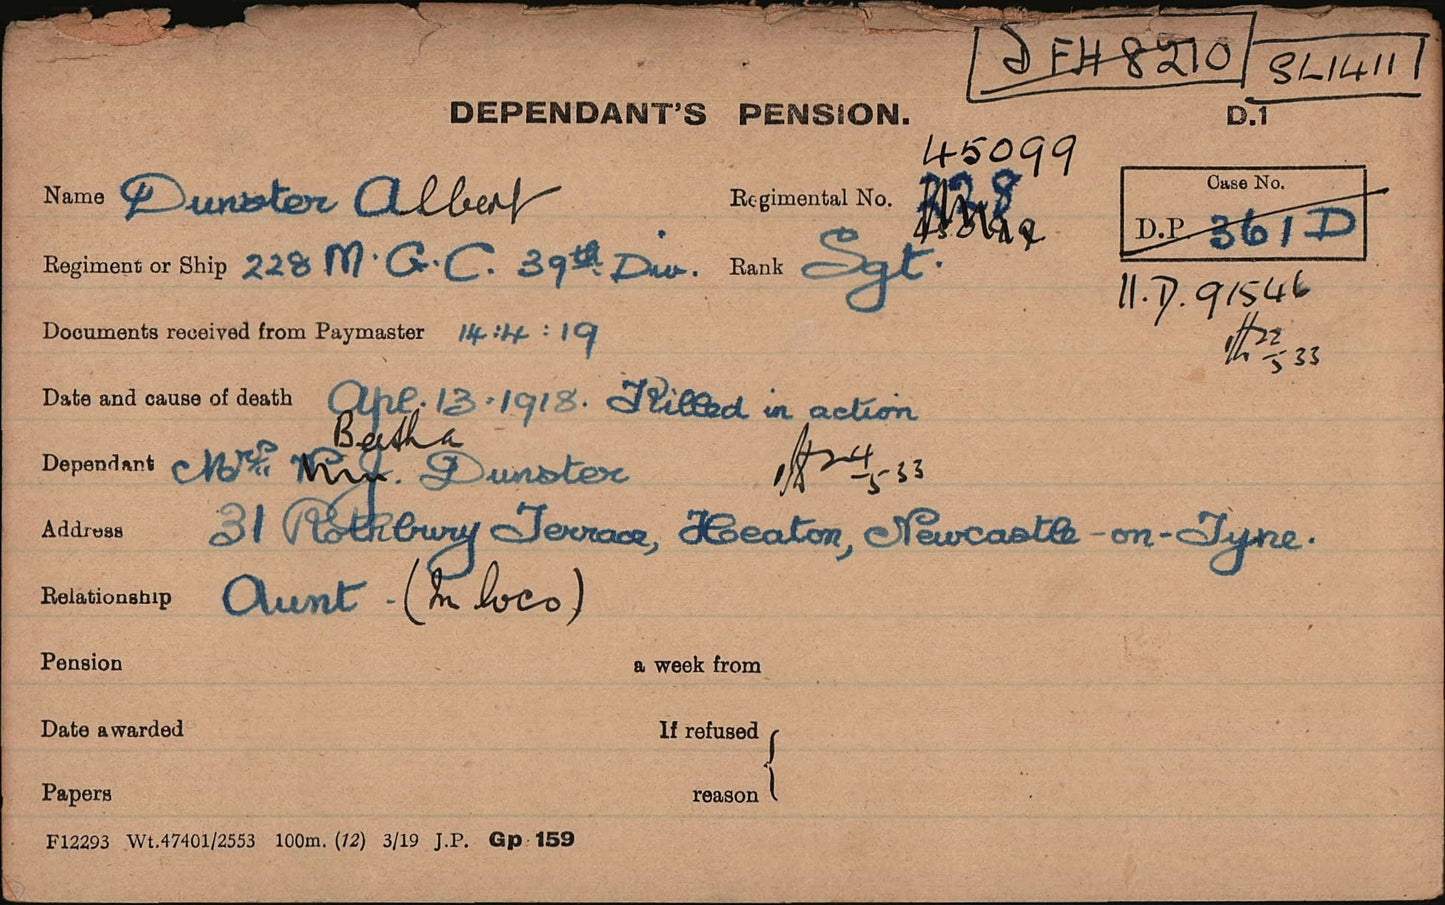 D FH 8210 SL1411
DEPENDANT'S PENSION. D.1
45099
Name Dunster Albert Regimental No. 228 Case No.
D.P. 361 D
Regiment or Ship 228 M.G.C. 39th Div. Rank Sgt.
11.D.91546
Documents received from Paymaster 14:4:19
22/5 33
Date and cause of death Apl. 13.1918. Killed in action
Bertha
Dependant Mrs J. Dunster 24/5 33
Address 31 Rothbury Terrace, Heaton, Newcastle-on-Tyne.
Relationship Aunt - (In loco)
Pension a week from
Date awarded If refused
Papers reason
F12293 Wt.47401/2553 100m. (12) 3/19 J.P. Gp 159